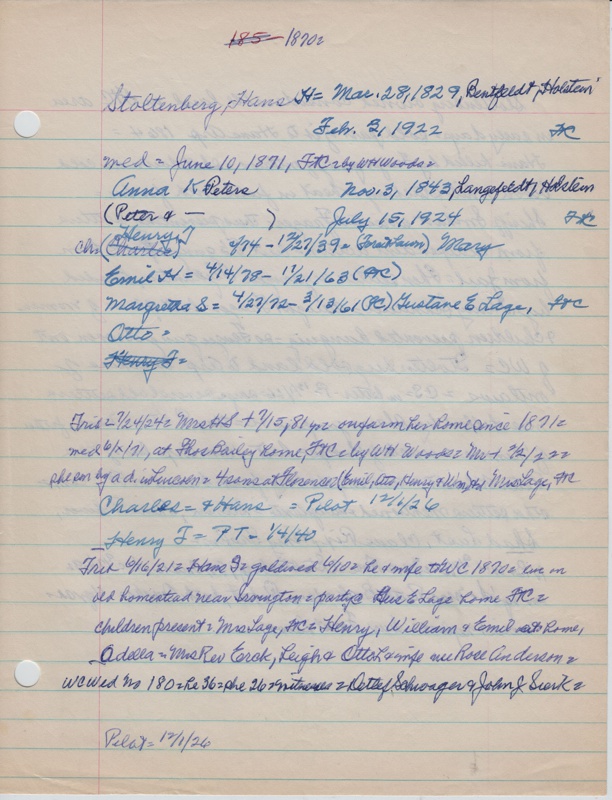 185 1870=
Stoltenberg, Hans H = Mar. 28, 1829, Bentfeldt, Holstein
Feb. 2, 1922 FtC
med = June 10, 1871, FtC = by WH Woods =
Anna K Peters Nov. 3, 1843, Langefeldt, Holstein
(Peter & — ) July 15, 1924 FtC
Henry T
chn (Charlie) 4/74 - 12/27/39 = Mary
Emil H = 4/14/78 - 11/21/63 (FtC)
Margretha S = 4/27/72 - 3/13/61 (FtC) Gustave E Lage, FtC
Otto =
Henry T =
Trib = 7/24/24 = Mrs H S + 7/15, 81 yr on farm her home since 1871 =
med 6/10/71, at Thos Bailey home, FtC = by WH Woods = Mr + 2/2/22 =
4 sons at Florence (Emil, Otto, Henry & Wm) Mrs Lage, FtC
Charles = & Hans = Pilot 12/1/26
Henry T = PT - 1/4/40
Trib 6/16/21 = Hans S = gold wed 6/10 = he & wife to WC 1870 =
old homestead near Irvington = party @ Gus E Lage home FtC =
children present = Mrs Lage, FtC = Henry, William & Emil at home,
Adella = Mrs Rev Erck, Leigh & Otto L & wife nee Rose Anderson =
WC Wed No 180 = he 36 = she 26 = witnesses = Detlef Schwager & John J Sierk =
Pilot = 12/1/26